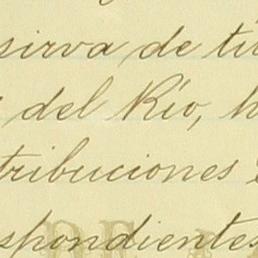 sirva de tí
del Rio, h
tribuciones
spondientes